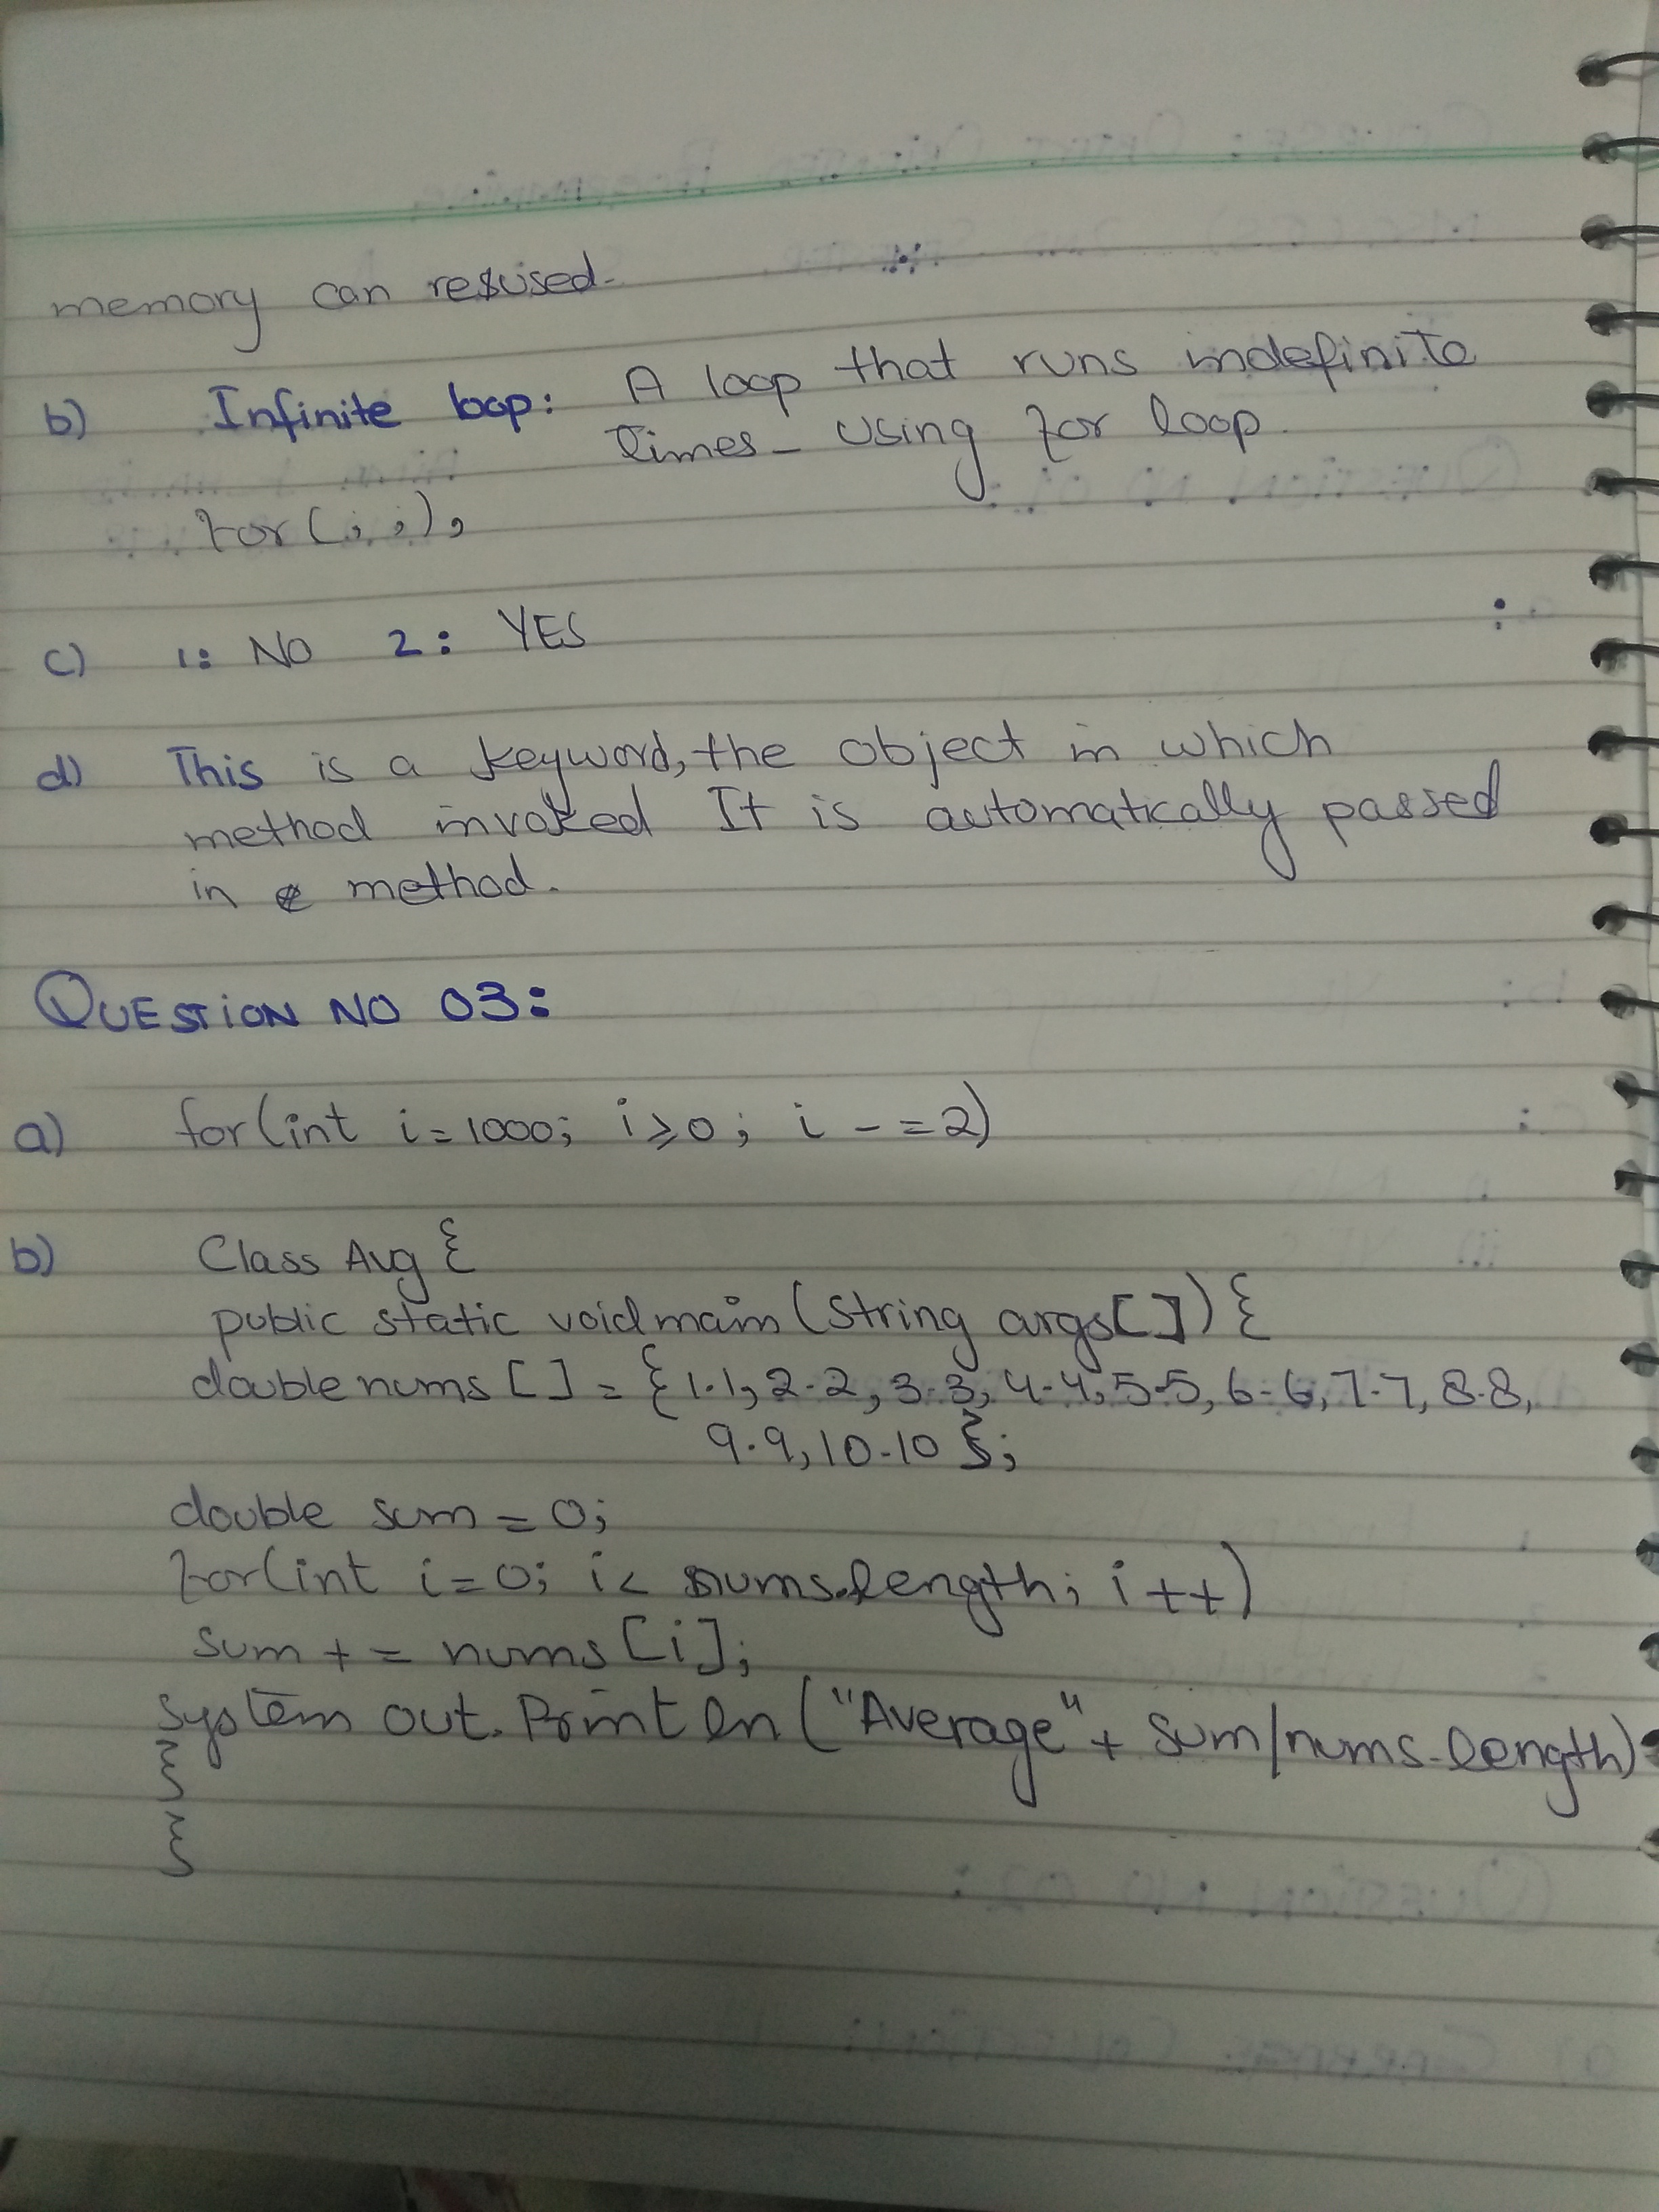 memory can resused.
b) Infinite loop: A loop that runs indefinite
times - using for loop.
for(;;);
c) 1: NO 2: YES
d) This is a keyword, the object in which
method invoked It is automatically passed
in method.
QUESTION NO 03:
a) for(int i=1000; i≥0; i -=2)
b) Class Avg {
public static void main (String args[]) {
double nums [] = {1.1, 2.2, 3.3, 4.4, 5.5, 6.6, 7.7, 8.8,
9.9, 10.10 };
double sum = 0;
for(int i=0; i< nums.length; i++)
sum += nums [i];
System out. Println ("Average" + sum/nums.length)
}
}